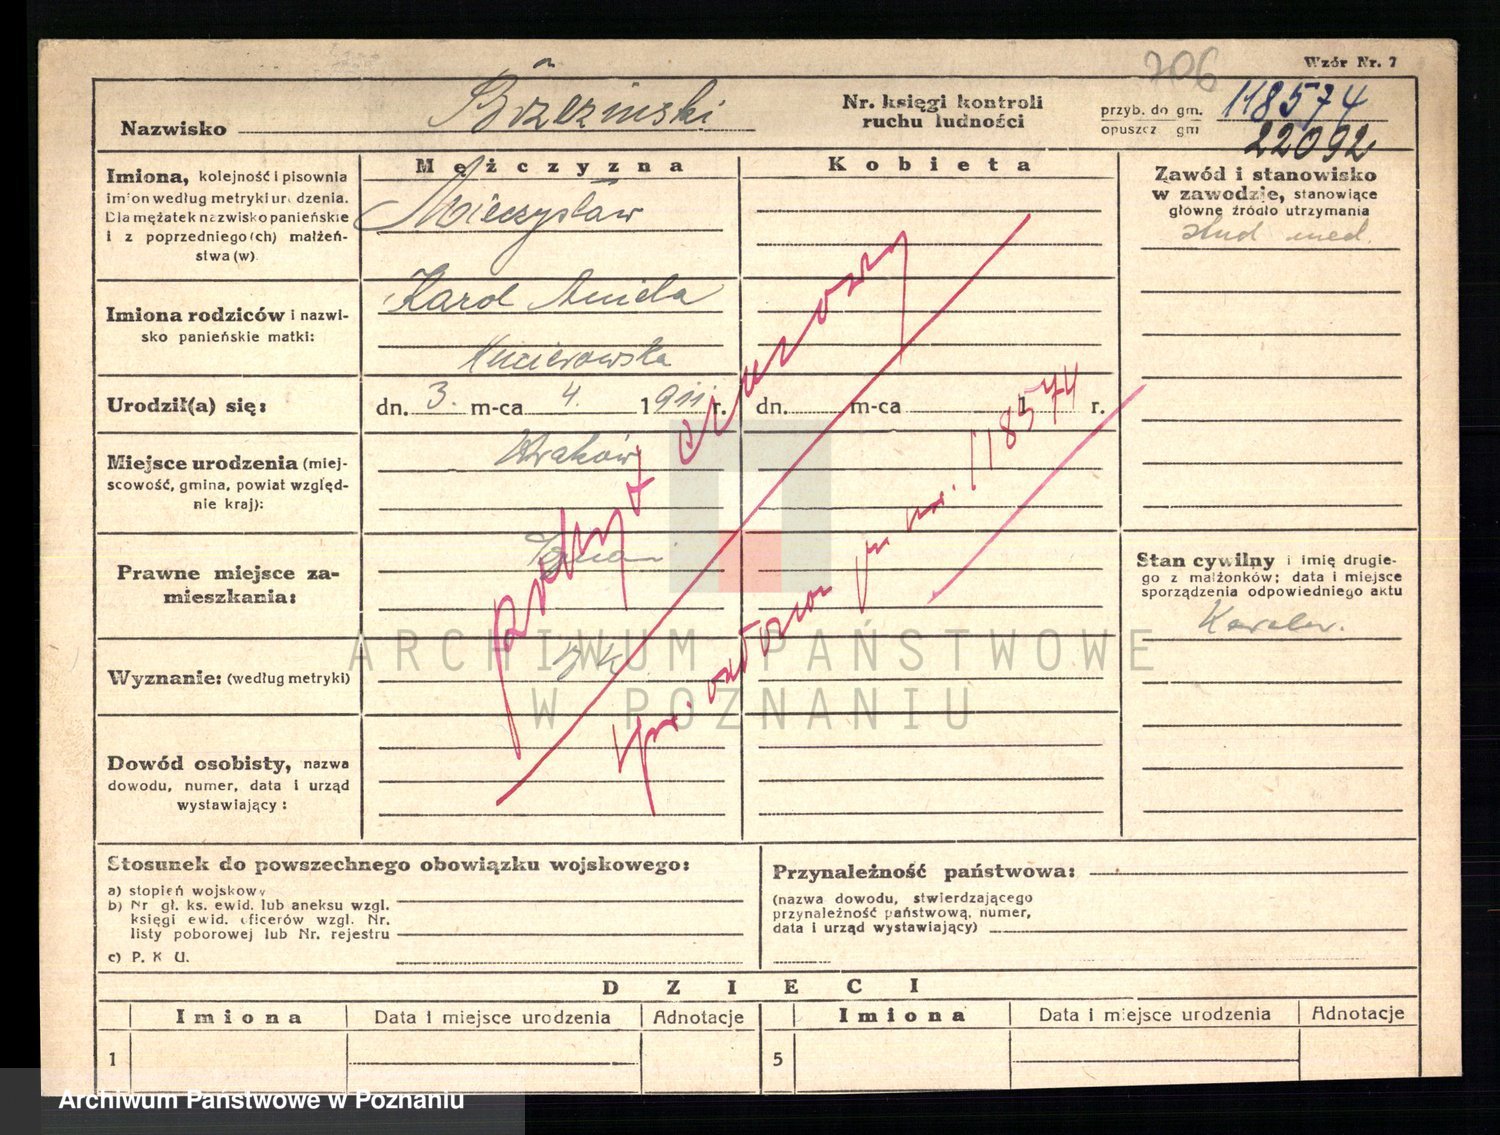 706
Wzór Nr. 7
Nazwisko Brzezinski
Nr. księgi kontroli
ruchu ludności
przyb. do gm. 118574
opuszcz gm 22092
Imiona, kolejność i pisownia
imion według metryki urodzenia.
Dla mężatek nazwisko panieńskie
i z poprzedniego(ch) małżeń-
stwa(w)
Mężczyzna
Mieczysław
Kobieta
Zawód i stanowisko
w zawodzie, stanowiące
główne źródło utrzymania
stud med.
Imiona rodziców i nazwi-
sko panieńskie matki:
Karol Aniela
Urodził(a) się:
dn. 3. m-ca 4. 1911 r.
dn. m-ca 1 r.
Miejsce urodzenia (miej-
scowość, gmina, powiat względ-
nie kraj):
Kraków
Prawne miejsce za-
mieszkania:
Poznań
Wyznanie: (według metryki)
rz k
Dowód osobisty, nazwa
dowodu, numer, data i urząd
wystawiający:
118574
Stan cywilny i imię drugie-
go z małżonków; data i miejsce
sporządzenia odpowiedniego aktu
Kawaler.
Stosunek do powszechnego obowiązku wojskowego:
a) stopień wojskowy
b) Nr gł. ks. ewid. lub aneksu wzgl.
księgi ewid. oficerów wzgl. Nr.
listy poborowej lub Nr. rejestru
c) P. K U.
Przynależność państwowa:
(nazwa dowodu, stwierdzającego
przynależność państwową, numer,
data i urząd wystawiający)
DZIECI
Imiona Data i miejsce urodzenia Adnotacje
Imiona Data i miejsce urodzenia Adnotacje
1
5
ARCHIWUM PAŃSTWOWE
W POZNANIU
Archiwum Państwowe w Poznaniu